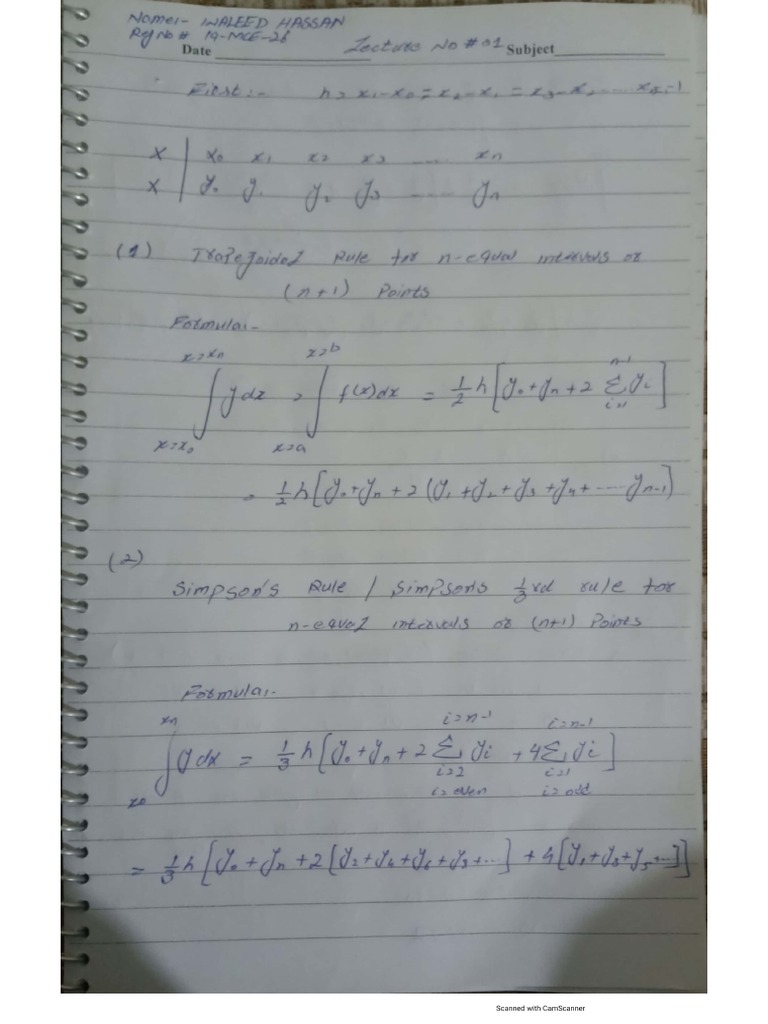 Name:- WALEED HASSAN
Reg No # 19-MCE-26
Date Lecture No # 01 Subject
First:- h = x₁-x₀ = x₂-x₁ = x₃-x₂
x | x₀ x₁ x₂ x₃ ..... xₙ
x | y₀ y₁ y₂ y₃ ..... yₙ
(1) Trapezoidal Rule for n-equal intervals or
(n+1) Points
Formula:-
x=xₙ x=b n-1
∫ y dx = ∫ f(x)dx = 1/2 h [y₀+yₙ+2 Σ yᵢ]
x=x₀ x=a i=1
= 1/2 h [y₀+yₙ+2 (y₁+y₂+y₃+y₄+ .... yₙ₋₁)]
(2)
Simpson's Rule / Simpsons 1/3 rd rule for
n-equal intervals or (n+1) Points
Formula:-
xₙ i=n-1 i=n-1
∫ y dx = 1/3 h [y₀+yₙ+2 Σ yᵢ +4 Σ yᵢ]
x₀ i=2 i=1
i=even i=odd
= 1/3 h [y₀+yₙ+2 [y₂+y₄+y₆+ +...] +4 [y₁+y₃+y₅+...]]
Scanned with CamScanner